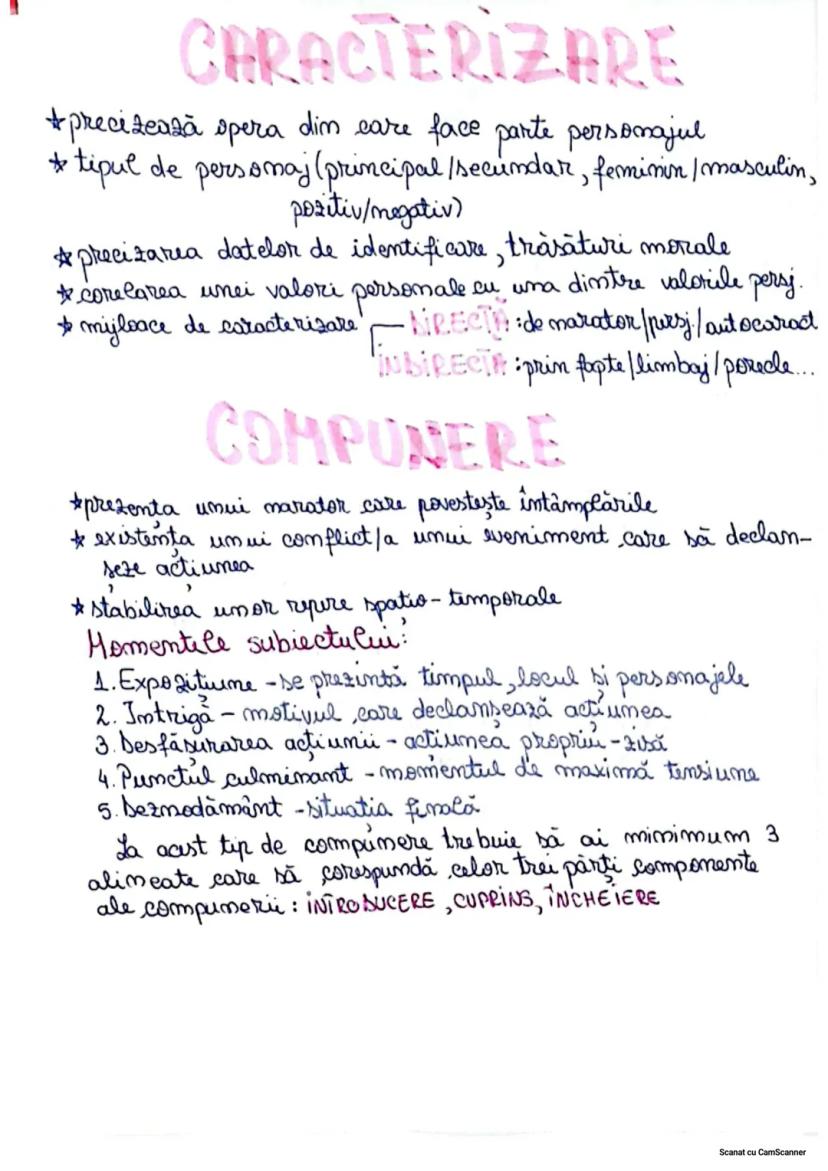 CARACTERIZARE
★precizează opera din care face parte personajul
★ tipul de personaj (principal/secundar, feminin/masculin,
pozitiv/negativ)
★ precizarea datelor de identificare, trăsături morale
★ corelarea unei valori personale cu una dintre valorile persj.
★ mijloace de caracterizare DIRECTĂ: de narator/persj./autocaract
INDIRECTĂ: prin fapte/limbaj/porecle...
COMPUNERE
★prezența unui narator care povestește întâmplările
★ existența unui conflict/a unui eveniment care să declan-
șeze acțiunea
★ stabilirea unor repere spațio-temporale
Momentele subiectului:
1. Expozițiune - se prezintă timpul, locul și personajele
2. Intrigă - motivul care declanșează acțiunea
3. Desfășurarea acțiunii - acțiunea propriu-zisă
4. Punctul culminant - momentul de maximă tensiune
5. Deznodământ - situația finală
La acest tip de compunere trebuie să ai minimum 3
alineate care să corespundă celor trei părți componente
ale compunerii: INTRODUCERE, CUPRINS, ÎNCHEIERE
Scanat cu CamScanner